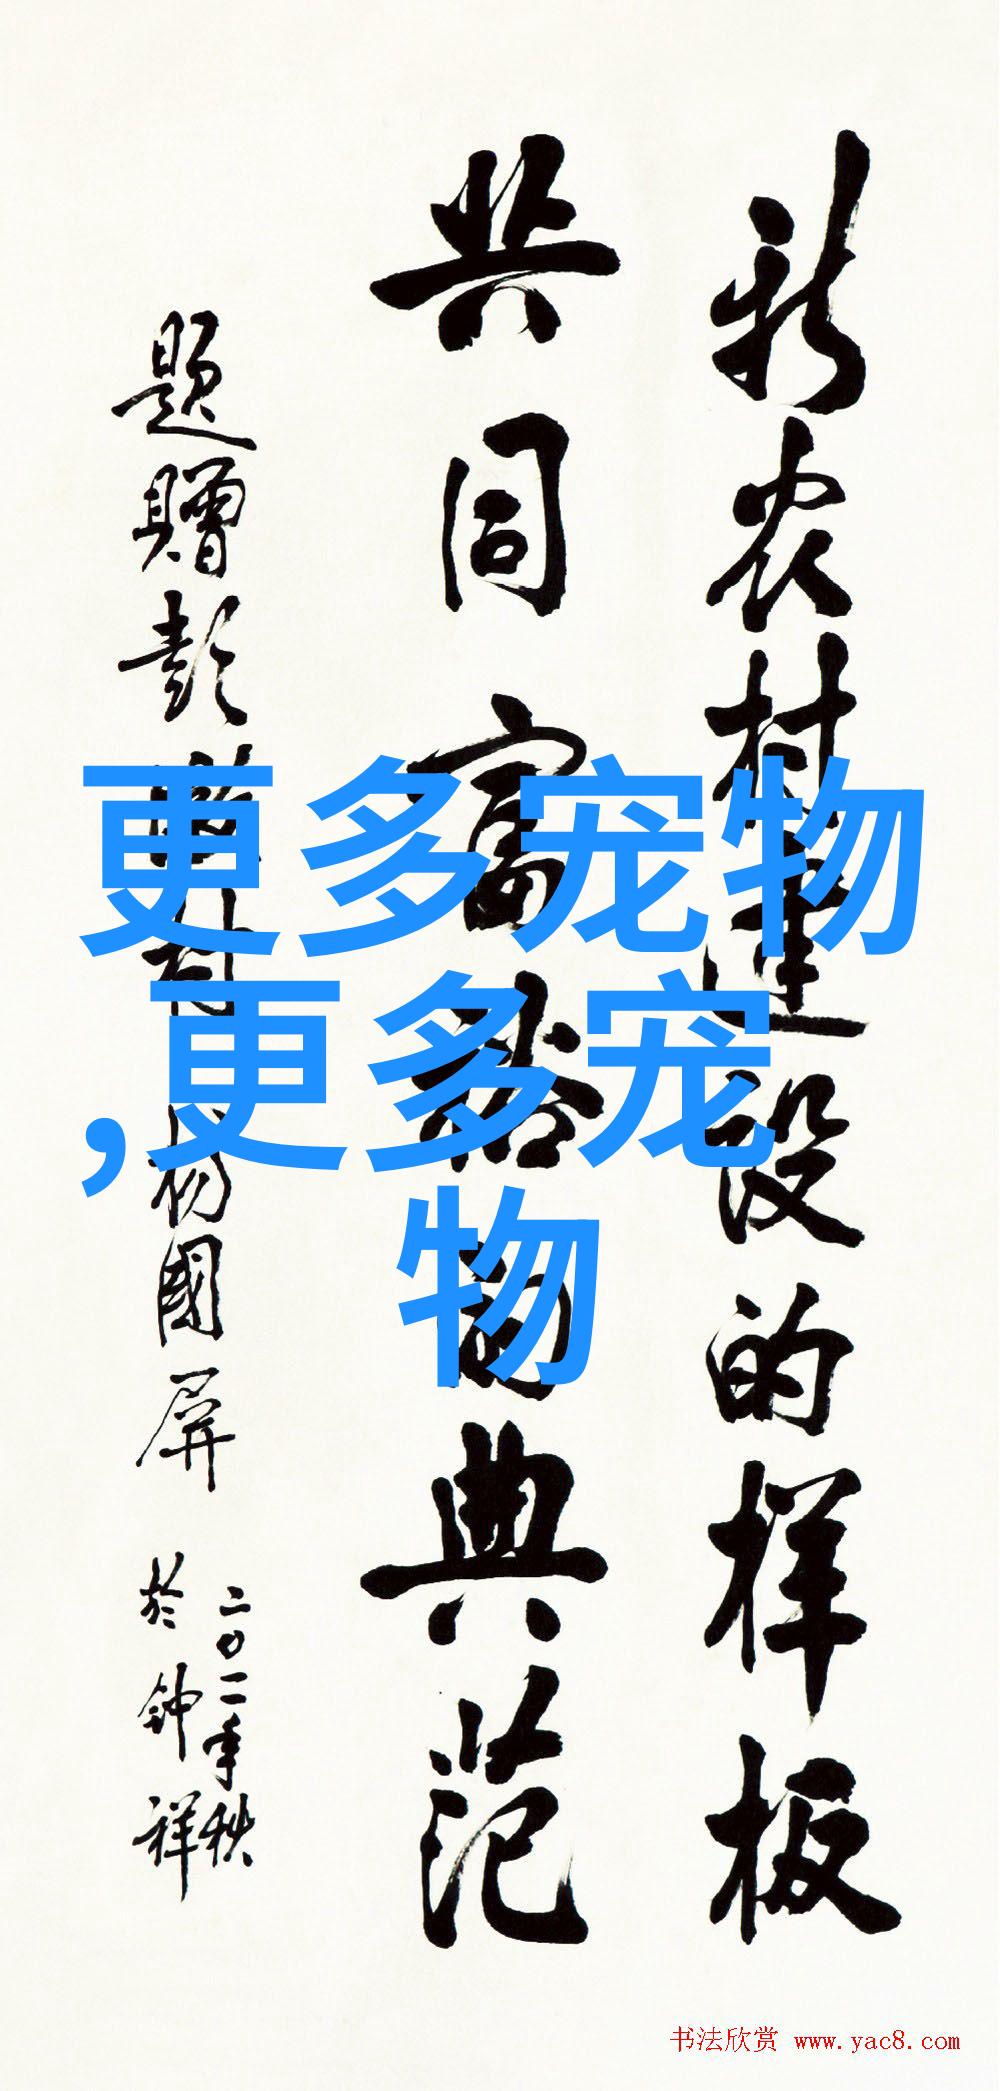 新农村建设的样板
共同富裕的典范
题赠彭墩村 杨国屏
二〇一一年秋
於钟祥
更多宠物
,更多宠
物
书法欣赏 www.yac8.com